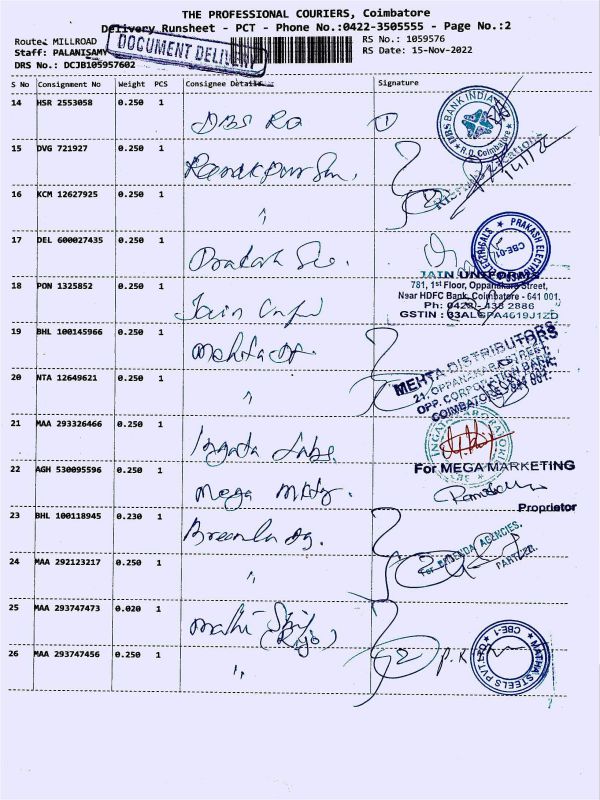 THE PROFESSIONAL COURIERS, Coimbatore
Delivery Runsheet - PCT - Phone No.:0422-3505555 - Page No.:2
Route: MILLROAD
Staff: PALANISAMY
DRS No.: DCJB105957602
DOCUMENT DELIVERY
RS No.: 1059576
RS Date: 15-Nov-2022
S No Consignment No Weight PCS Consignee Details Signature
14 HSR 2553058 0.250 1 DBS RO 1
BANK INDIA
R.D. Coimbatore
15 DVG 721927 0.250 1
16 KCM 12627925 0.250 1 "
17 DEL 600027435 0.250 1 Prakash
PRAKASH ELECTRICALS
CBE-01
18 PON 1325852 0.250 1 Jain
JAIN UNIFORMS
781, 1st Floor, Oppanakara Street,
Near HDFC Bank, Coimbatore - 641 001.
Ph: 0422- 438 2886
GSTIN : 33ALGPA4619J1ZD
19 BHL 100145966 0.250 1 Mehta
MEHTA DISTRIBUTORS
21, OPPANAKARA STREET,
OPP. CORPORATION BANK,
COIMBATORE-641 001.
20 NTA 12649621 0.250 1 "
21 MAA 293326466 0.250 1 Ingata Labs
22 AGH 530095596 0.250 1 Mega Mktg.
For MEGA MARKETING
Proprietor
23 BHL 100118945 0.230 1
AGENCIES.
PARTNER.
24 MAA 292123217 0.250 1 "
25 MAA 293747473 0.020 1
26 MAA 293747456 0.250 1 " 2 P.K
MATHA STEELS PVT LTD
CBE-1